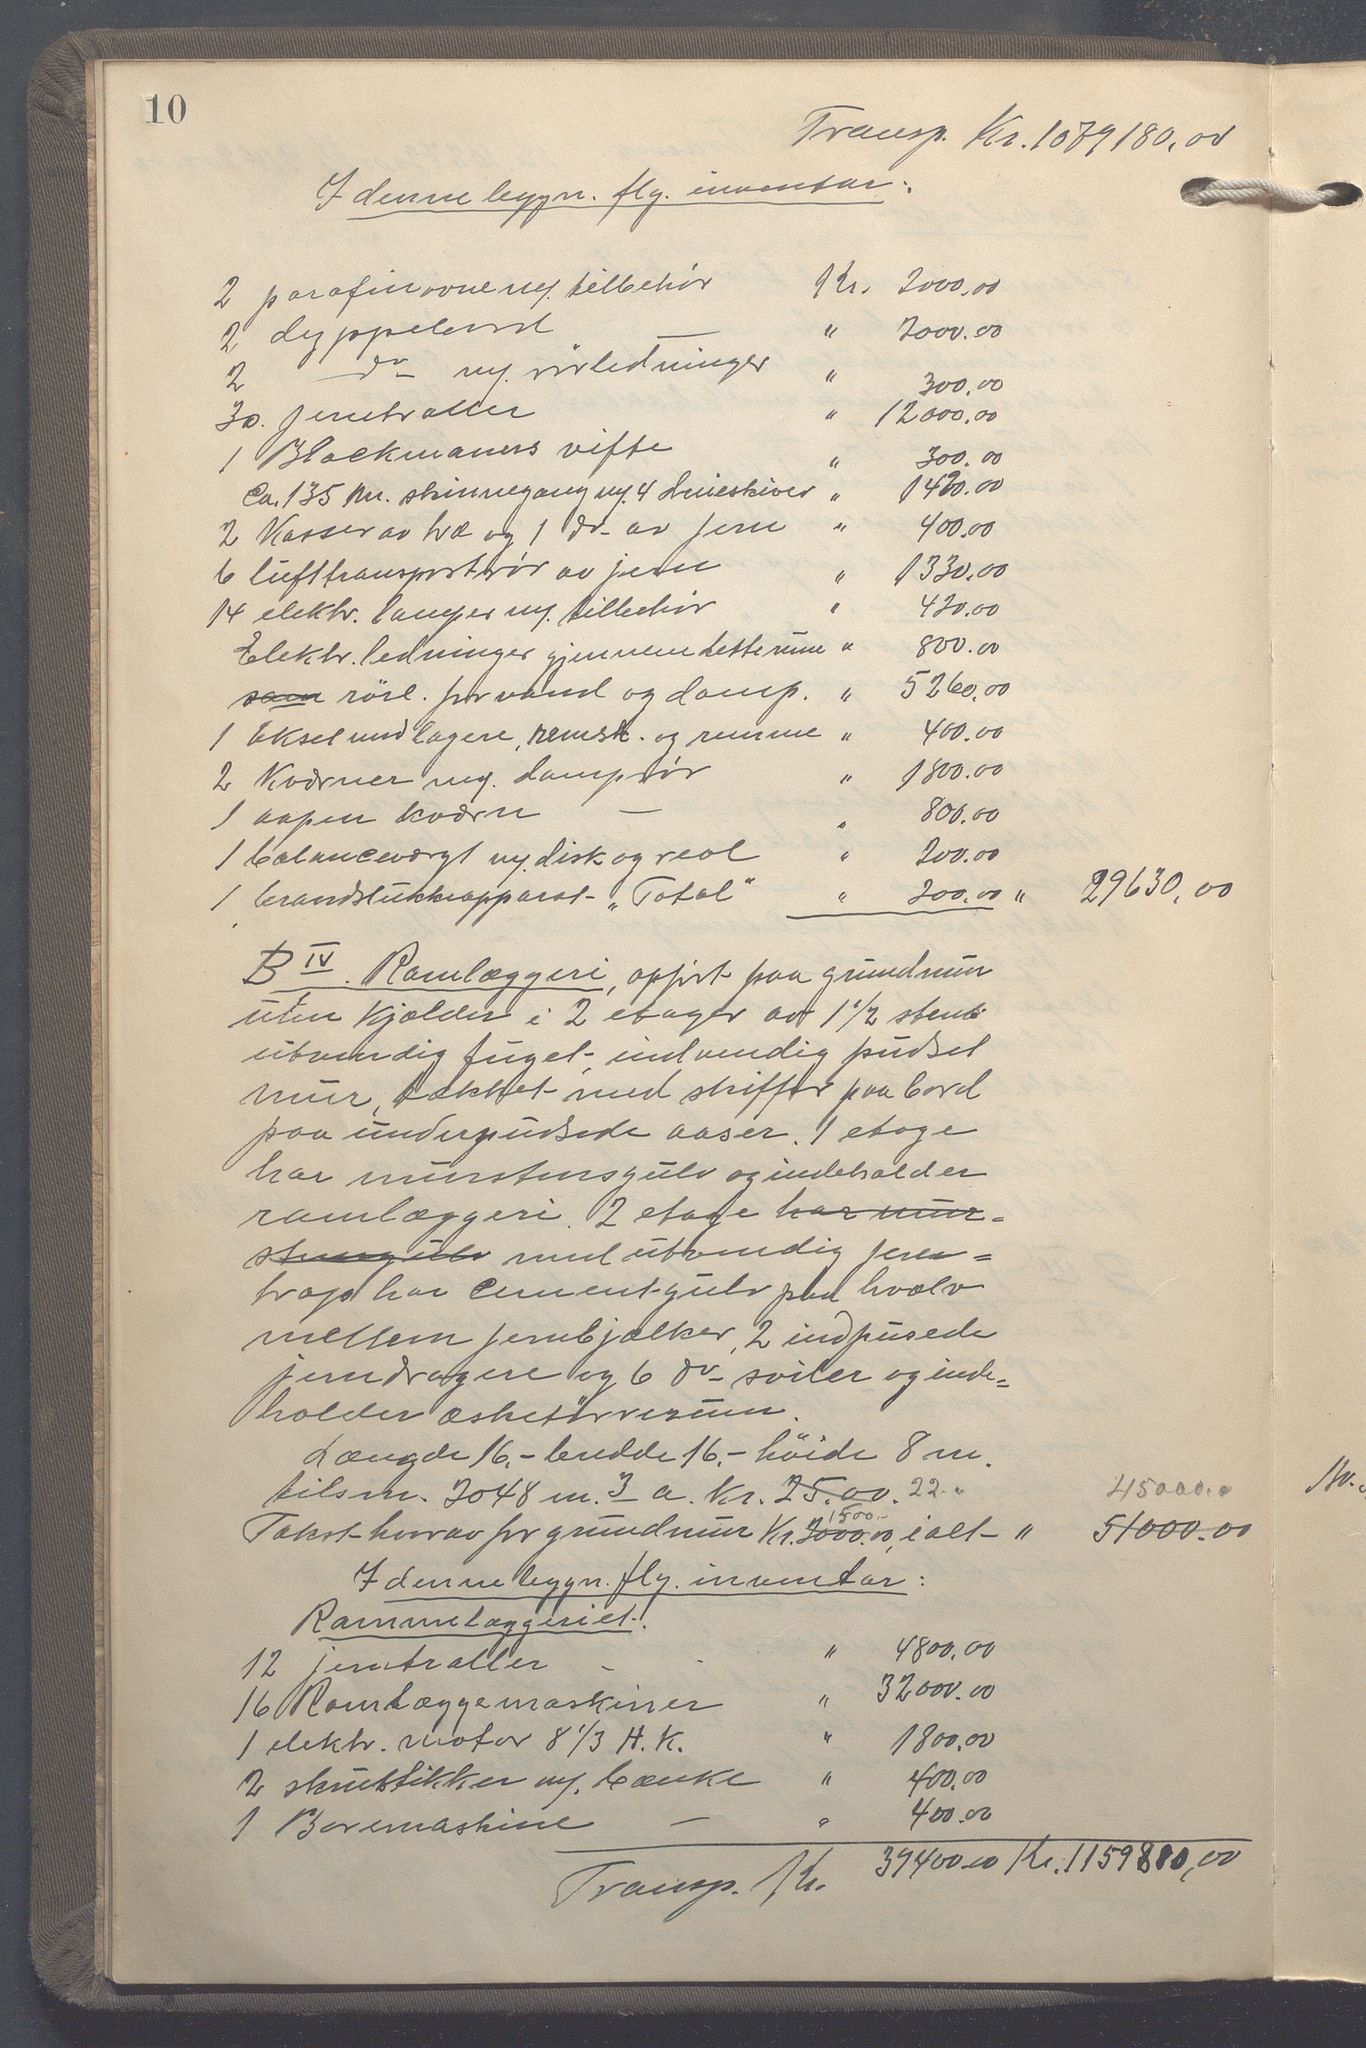 10
Transp. Kr. 1079180,00
I denne bygn. flg. inventar:
2 parafinovne m/. tilbehör Kr. 2000,00
2 dyppebord — " 2000.00
2 —do— m/. rörledninger " 300,00
30. jerntraller " 12000,00
1 Blackmanns vifte " 300.00
Ca. 135 m. skinnegang m/. 4 dreieskiver " 1420.00
2 Kasser av træ og 1 do- av jern " 400.00
6 lufttransportrör av jern " 1330,00
14 elektr. lamper m/. tilbehör " 420.00
Elektr. ledninger gjennem dette rum " 800.00
som rörl. for vand og damp. " 5260,00
1 aksel med lagere, remsk. og remme " 400.00
2 Kværner m/. damprör " 1800.00
1 aapen kværn — " 800.00
1 balancevægt m/. disk og reol " 200.00
1 brandslukkeapparat „Total" " 200.00 " 29630,00
B IV. Ramlæggeri, opfört paa grundmur
uten kjælder i 2 etager av 1 1/2 stens
utvendig fuget, indvendig pudset
mur, tækket med skiffer paa bord
paa underpudsede aaser. 1 etage
har murstensgulv og indeholder
ramlæggeri. 2 etage har mur-
stensgulv med utvendig jern=
trap har cementgulv paa hvælv
mellem jernbjælker, 2 indpusede
jerndragere og 6 do- söiler og inde=
holder æsketörrerum.
Længde 16,- bredde 16,- höide 8 m.
tilsm. 2048 m.3 a. Kr. 25.00. 22."  45000.0
Takst hvorav for grundmur Kr. 2000.00, 1500.- ialt " 51000.00
I denne bygn. flg. inventar:
Rammelæggeriet.
12 jerntraller - " 4800,00
16 Ramlæggemaskiner " 32000.00
1 elektr. motor 8 1/3 H.K. " 1800,00
2 skrustikker m/. bænke " 400,00
1 Boremaskine — " 400.00
Transp. Kr. 39400.00 Kr. 1159810,00